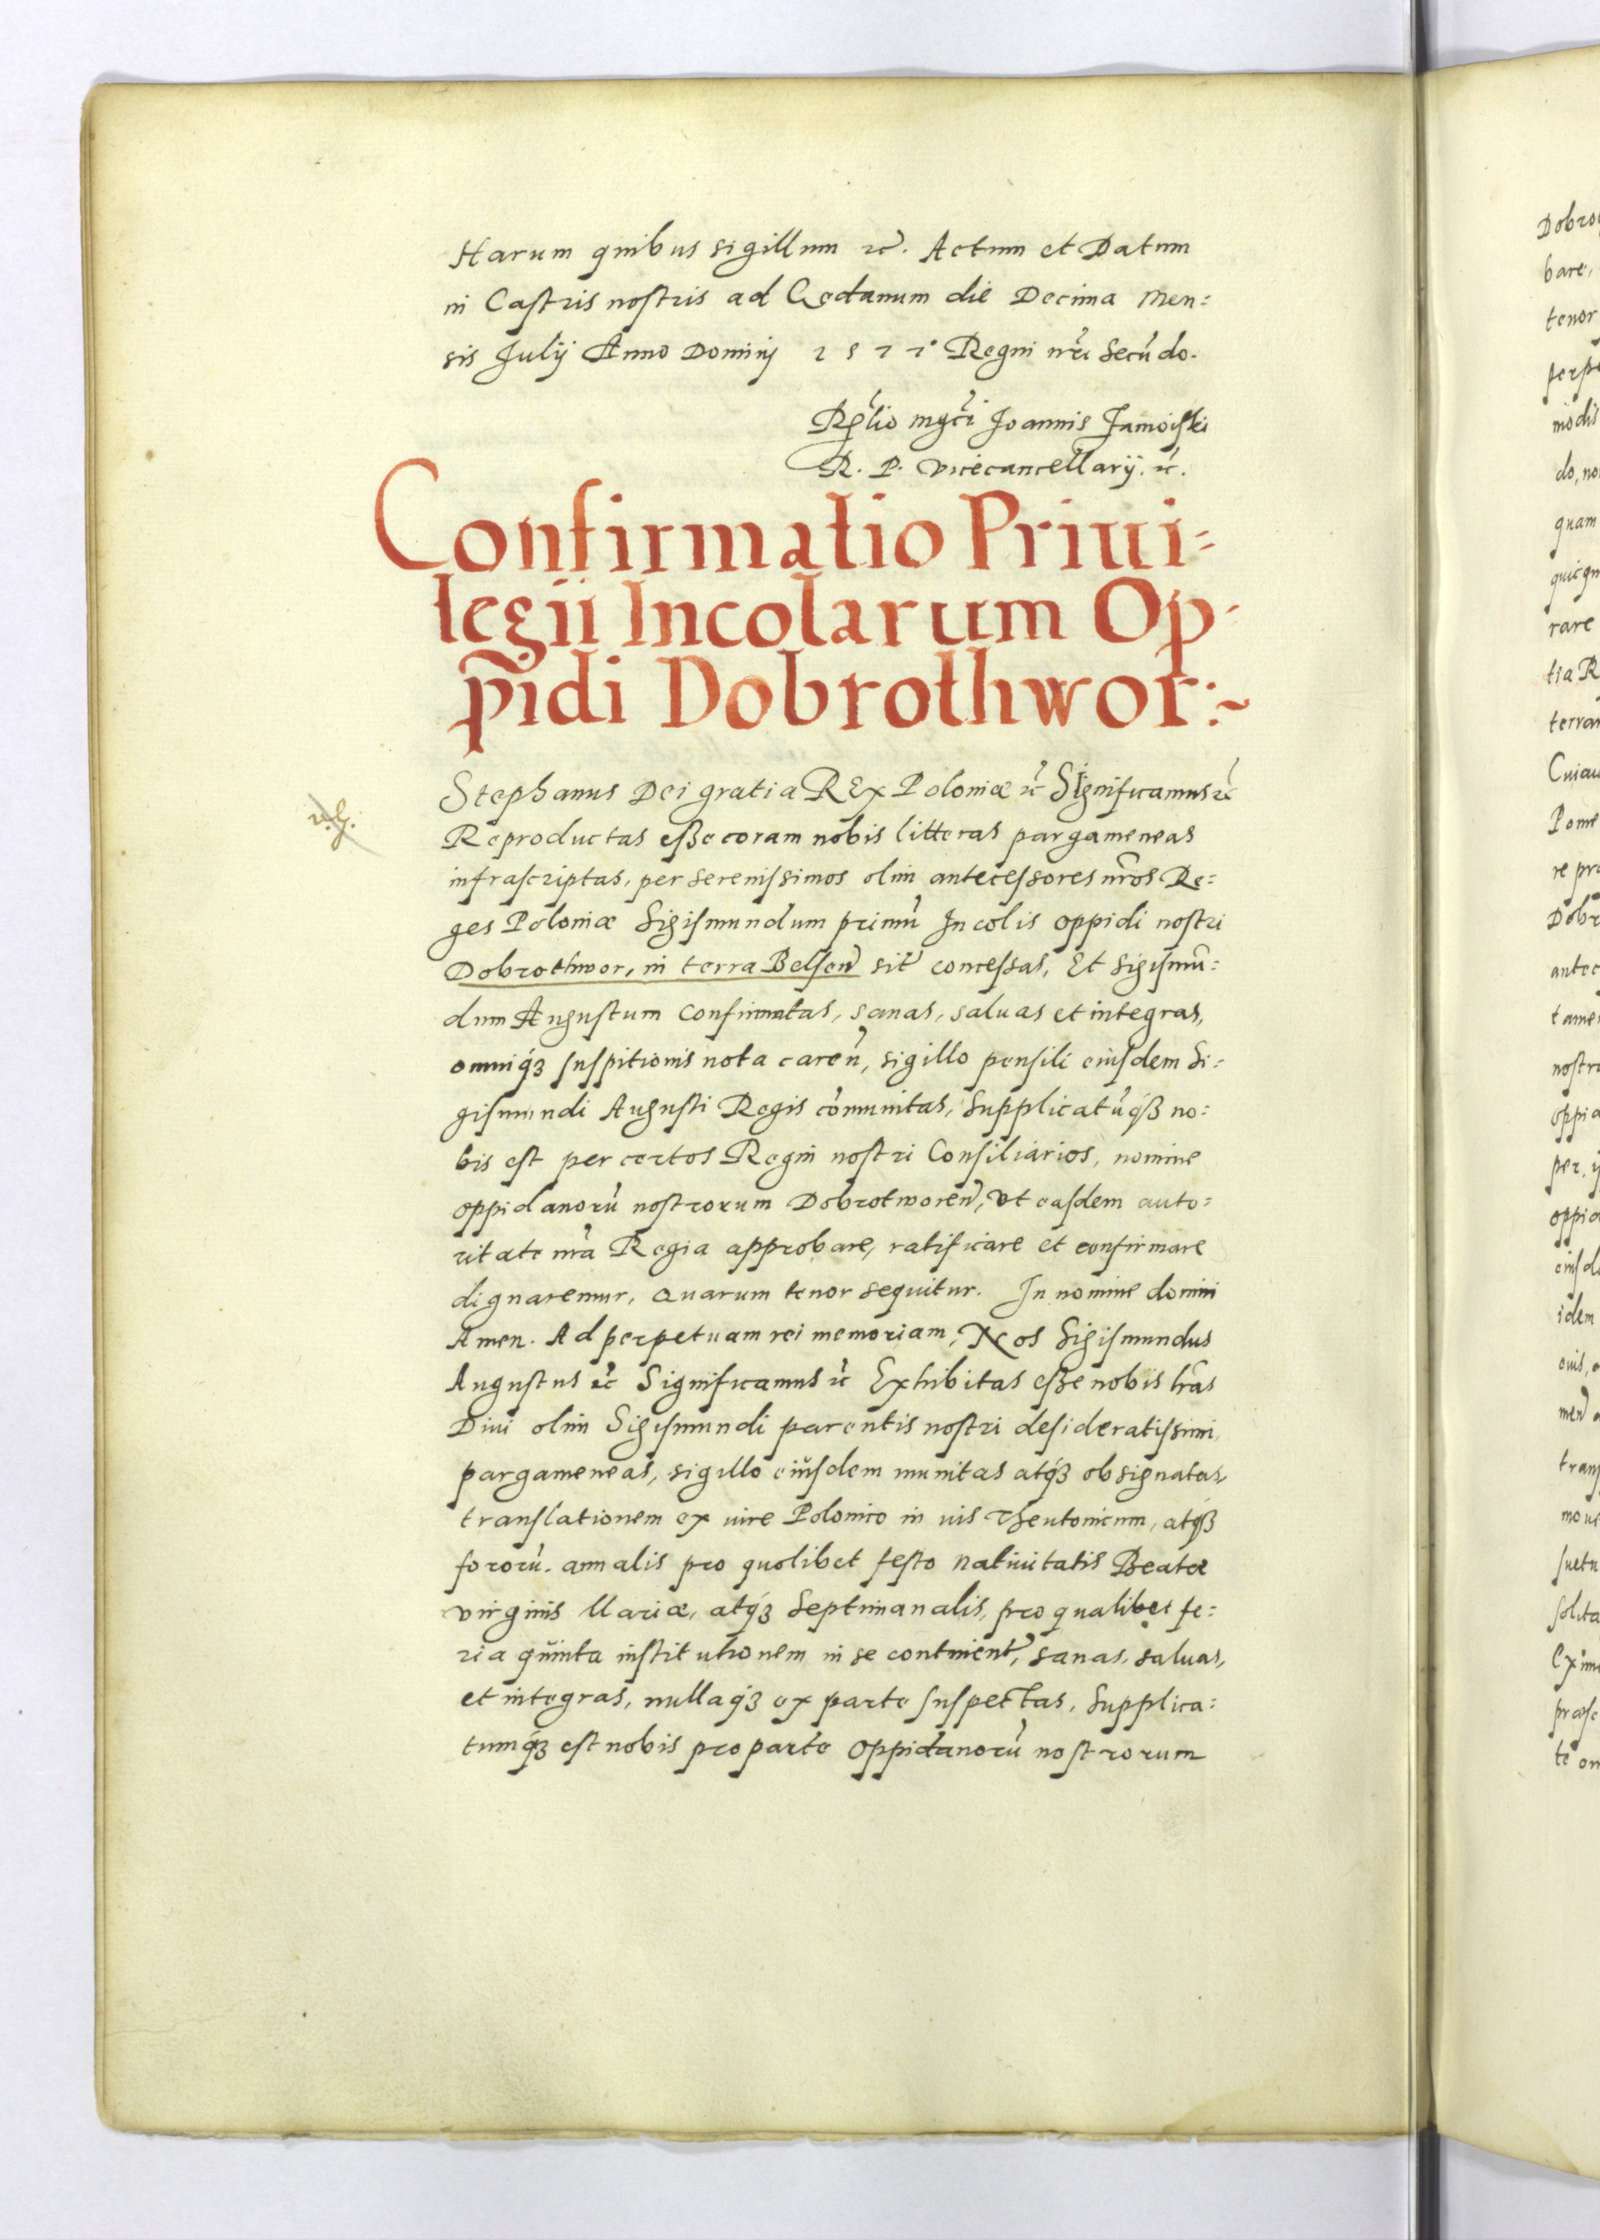 Harum quibus sigillum ꝛc̃. Actum et Datum
in Castris nostris ad Gedanum die Decima Men:
sis Julij Anno Dominj 1577° Regni nr̃i Secũdo.
Rẽlio mgc̃i Joannis Zamoiski
R. P. vicecancellarij. ꝛc̃.
Confirmatio Priui-
legii Incolarum Op-
pidi Dobrothwor:~
Stephanus Dei gratia REx Poloniæ ꝛc̃ Significamus ꝛc̃
Reproductas eße coram nobis litteras pargameneas
infrascriptas, per serenissimos olim antecessores nr̃os Re:
ges Poloniæ Sigismundum primũ Incolis oppidi nostri
Dobrothwor, in terra Belsen̄ sit̃ concessas, Et Sigismũ:
dum Augustum confirmatas, sanas, saluas et integras,
omniq́ꝫ suspitionis nota caren̄, sigillo pensili eiusdem Si:
gismundi Augusti Regis cõmunitas, Supplicatũq́ꝫ no:
bis est per certos Regni nostri Consiliarios, nomine
oppidanorũ nostrorum Dobrotworen̄, Vt easdem auto:
ritate nr̃a Regia approbare, ratificare et confirmare
dignaremur, Quarum tenor sequitur. In nomine domini
Amen. Ad perpetuam rei memoriam, Nos Sigismundus
Augustus ꝛc̃ Significamus ꝛc̃ Exhibitas eße nobis lr̃as
Diui olim Sigismundi parentis nostri desideratissimi,
pargameneas, sigillo eiusdem munitas atq́ꝫ obsignatas,
translationem ex iure Polonico in ius Theutonicum, atq́ꝫ
fororũ. annalis pro quolibet festo Natiuitatis Beatæ
virginis Mariæ, atq́ꝫ Septimanalis, pro qualibet fe:
ria quinta institutionem in se continent̃, sanas, saluas,
et integras, nullaq́ꝫ ex parte suspectas, Supplica:
tumq́ꝫ est nobis pro parte oppidanorũ nostrorum